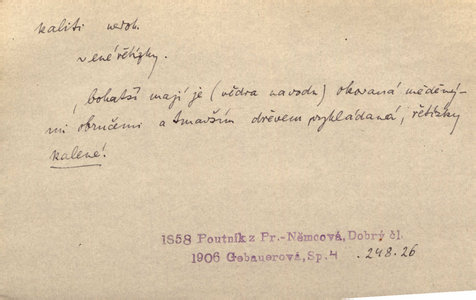 kaliti nedok.
řetízky.
, bohatší mají je (vědra na vodu) okovaná měděný-
mi obručemi a tmavším dřevem vykládaná, řetízky
kalené!
1858 Poutník z Pr.-Němcová, Dobrý čl.
1906 Gebauerová, Sp. 4 . 248. 26